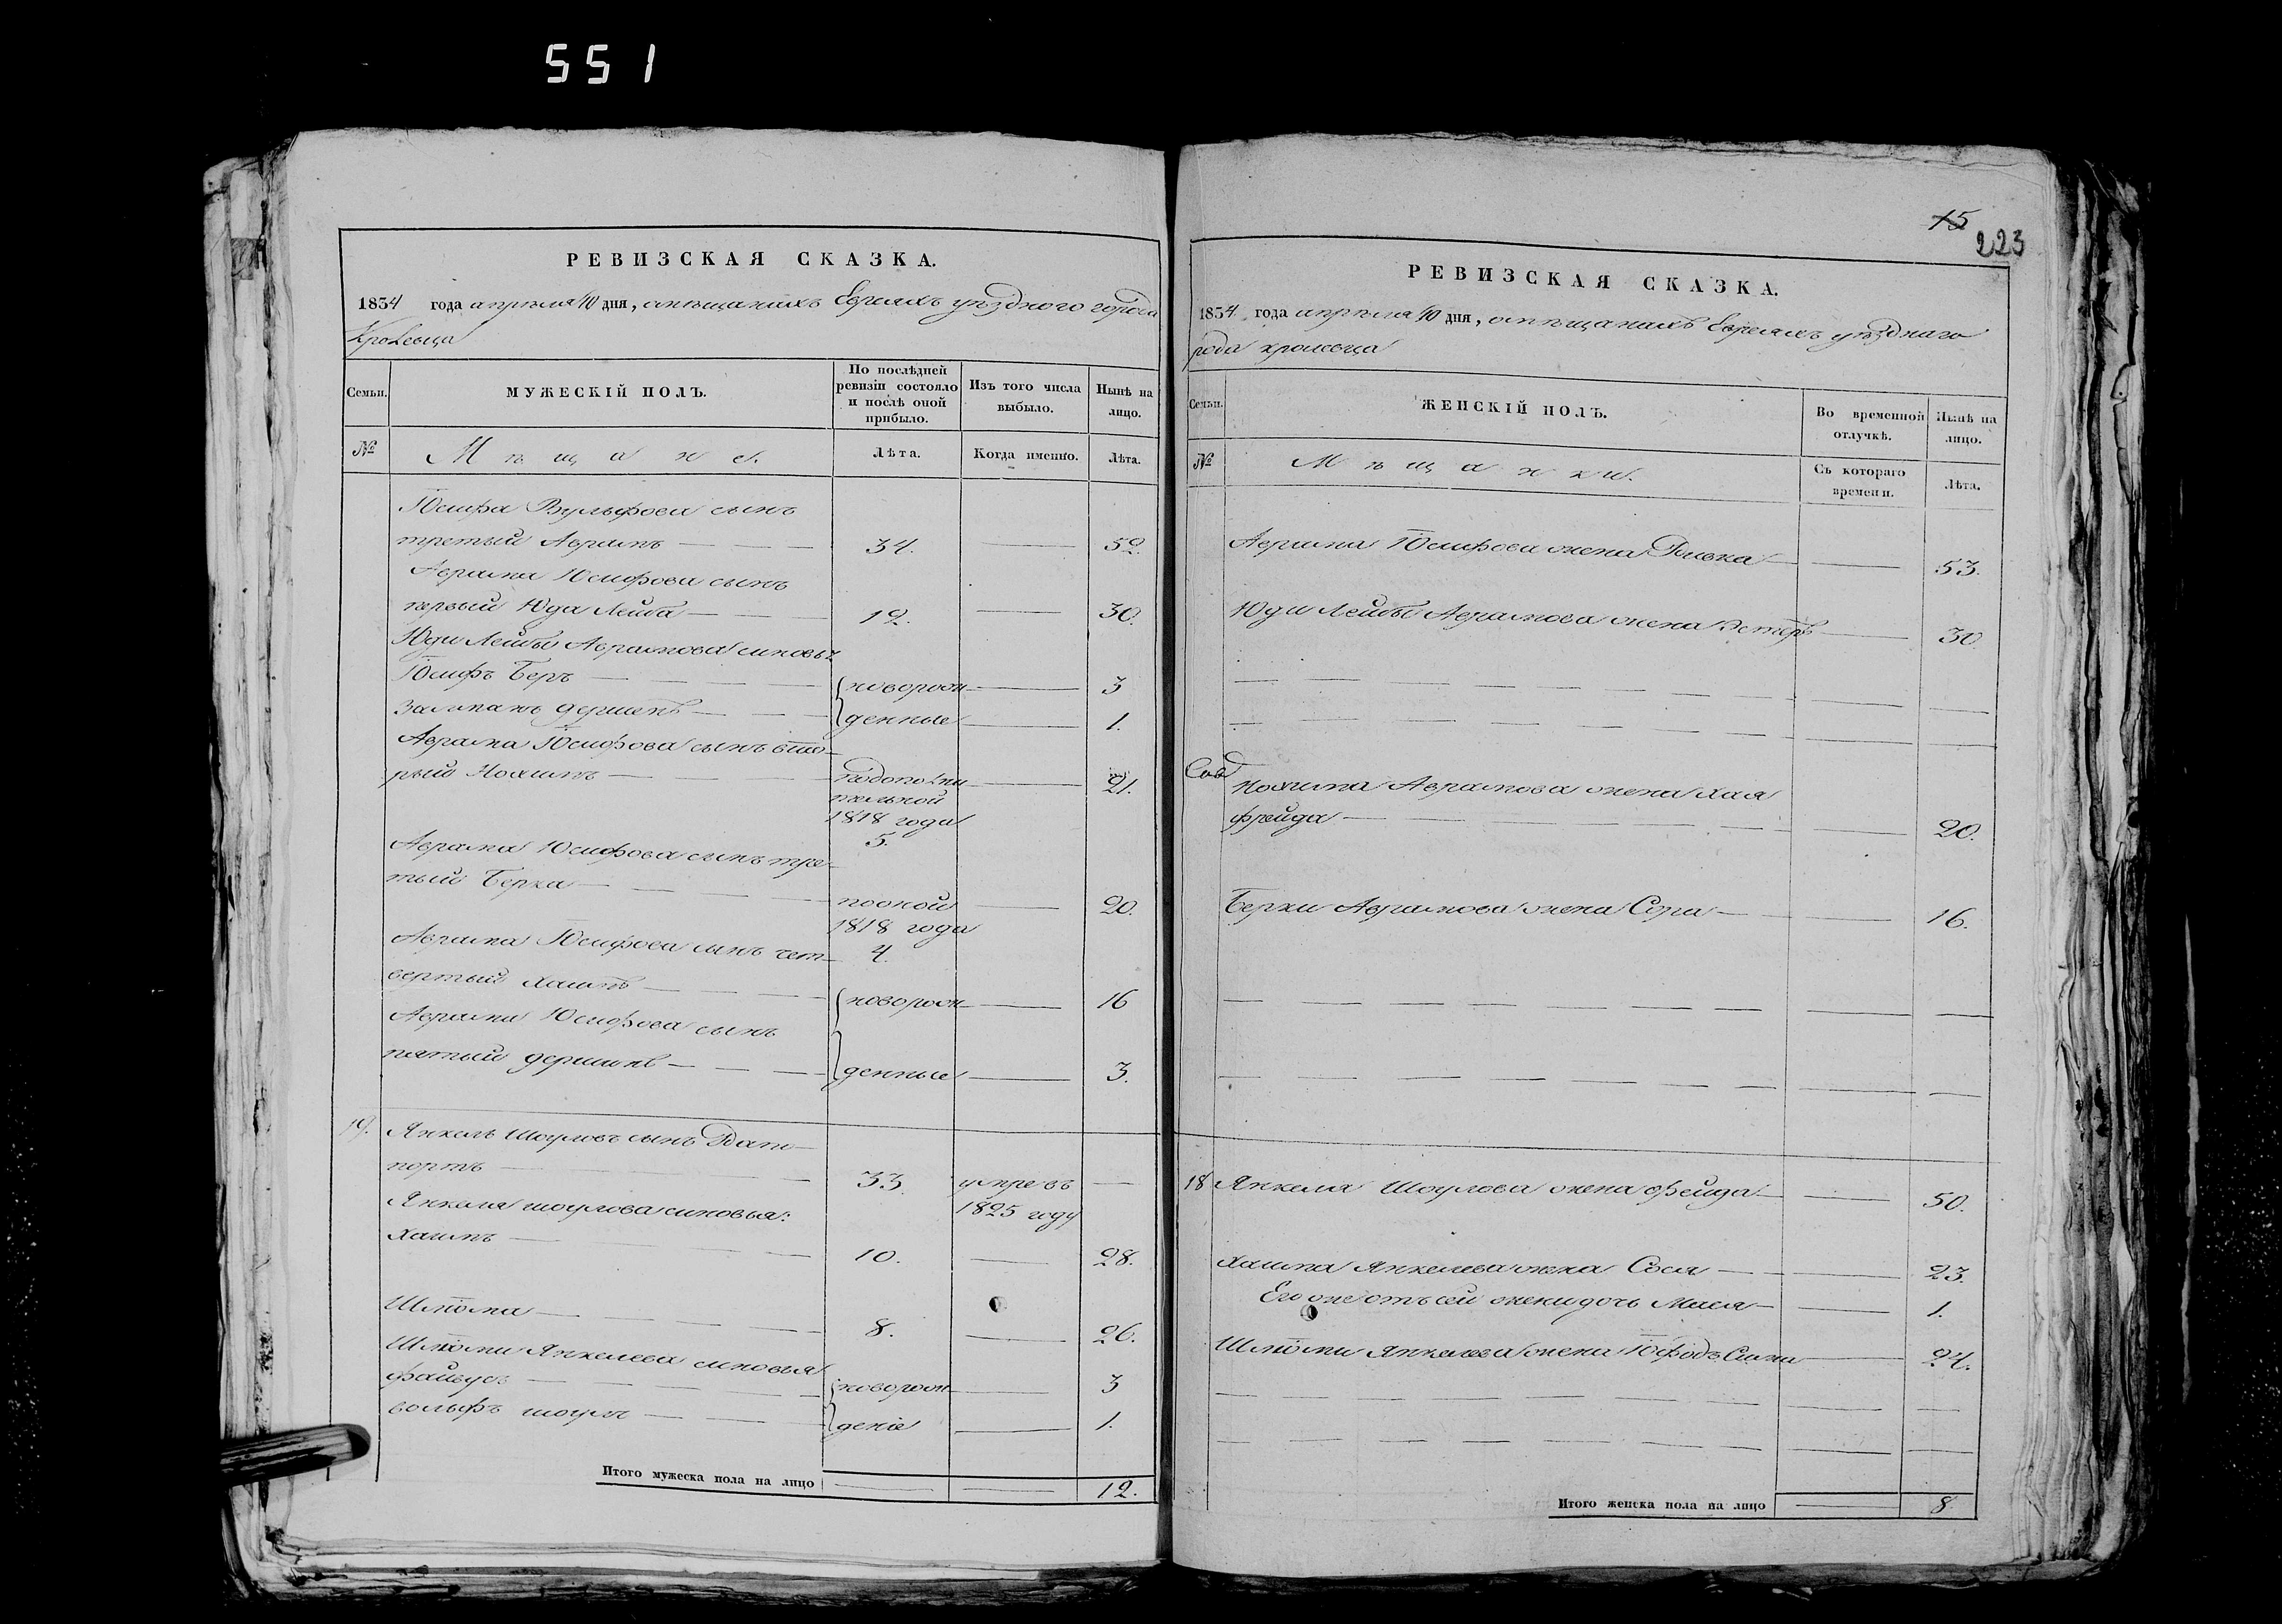 551
15
223
РЕВИЗСКАЯ СКАЗКА.
1834 года апреля 10 дня, о мѣщанахъ Евреяхъ уѣздного города
Кролевца
Семьи.
МУЖЕСКІЙ ПОЛЪ.
По послѣдней
ревизіи состояло
и послѣ оной
прибыло.
Изъ того числа
выбыло.
Нынѣ на
лицо.
№
Мѣщане.
Лѣта.
Когда именно.
Лѣта.
Юсифа Вульфова сынъ
третьій Аврамъ — 34. — 52.
Аврама Юсифова сынъ
первый Юда Лейба — 12. — 30.
Юди Лейбы Аврамова синовья
Юсифъ Беръ — новорож — 3
Залманъ — денные — 1.
Аврама Юсифова сынъ вто-
рый Нохимъ — 21.
тельной
1818 года
5.
Аврама Юсифова сынъ тре-
тьій Берка — по оной — 20.
1818 года
4.
Аврама Юсифова сынъ чет-
вертый Хаимъ — новорож — 16
Аврама Юсифова сынъ
пятый — денные — 3.
19. Янкель Шоуловъ сынъ Рапо-
портъ — 33. умре въ —
1825 году
Янкеля Шоулова синовья:
Хаимъ — 10. — 28.
Шліома — 8. — 26.
Шліоми Янкелева синовья
Файвусъ — новорож — 3
Вольфъ Шоулъ — деніе — 1.
Итого мужеска пола на лицо — — 12.
РЕВИЗСКАЯ СКАЗКА.
1834 года апрѣля 10 дня, о мѣщанахъ Евреяхъ уѣздного
рода Кролевца
Семьи.
ЖЕНСКІЙ ПОЛЪ.
Во временной
отлучкѣ.
Нынѣ на
лицо.
№
Мѣщанки.
Съ котораго
времени.
Лѣта.
Аврама Юсифова жена Ривка — — 53.
Юди Лейбы Аврамова жена Эстеръ — 30
Нохима Аврамова жена Хая
Фрейда — — 20.
Берки Аврамова жена Сора — — 16.
18 Янкеля Шоулова жена Фейда — — 50.
Хаима Янкелева жена Сося — — 23.
Его же отъ сей жени дочь Мася — — 1.
Шліоми Янкелева жена — 24.
Итого женска пола на лицо — 8.